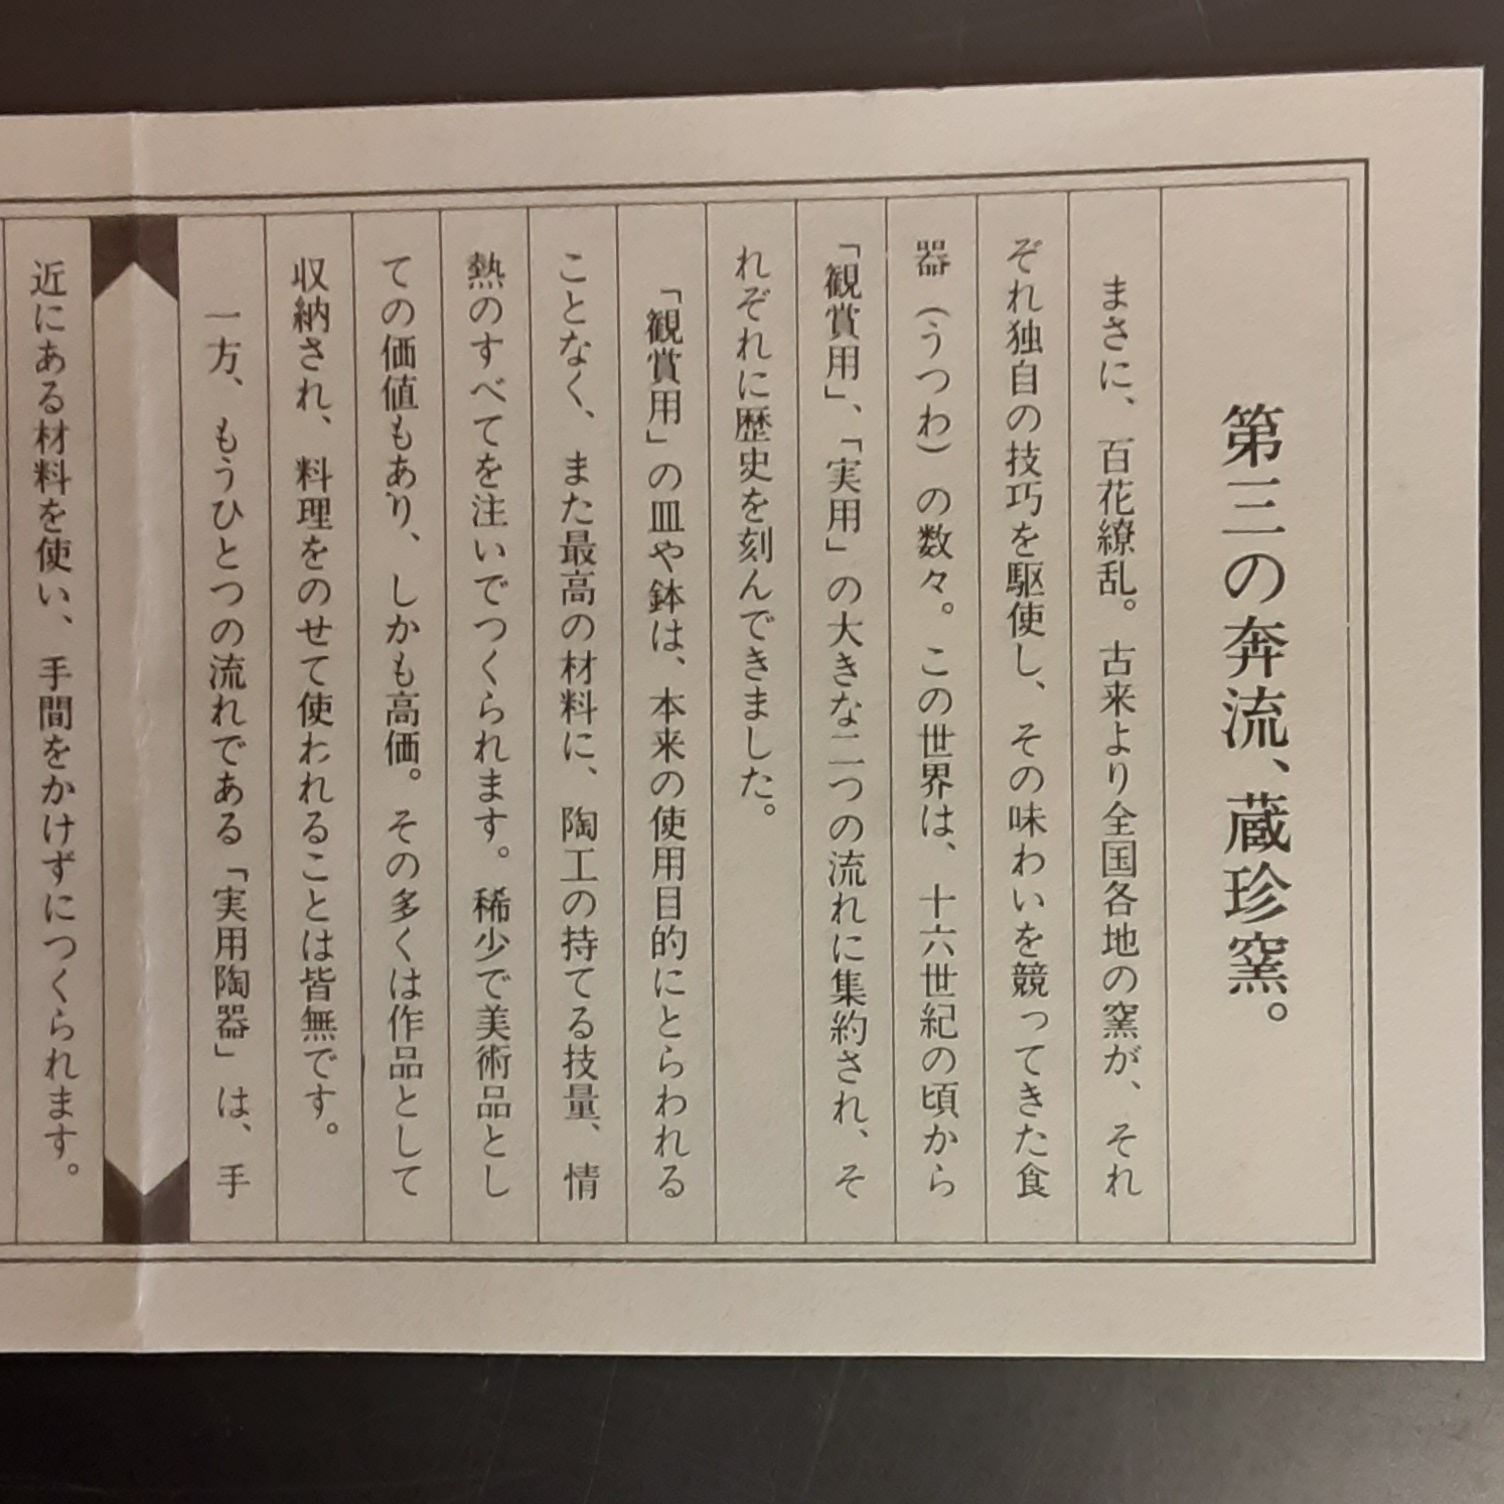 第三の奔流、蔵珍窯。
まさに、百花繚乱。古来より全国各地の窯が、それ
ぞれ独自の技巧を駆使し、その味わいを競ってきた食
器（うつわ）の数々。この世界は、十六世紀の頃から
「観賞用」、「実用」の大きな二つの流れに集約され、そ
れぞれに歴史を刻んできました。
「観賞用」の皿や鉢は、本来の使用目的にとらわれる
ことなく、また最高の材料に、陶工の持てる技量、情
熱のすべてを注いでつくられます。稀少で美術品とし
ての価値もあり、しかも高価。その多くは作品として
収納され、料理をのせて使われることは皆無です。
一方、もうひとつの流れである「実用陶器」は、手
近にある材料を使い、手間をかけずにつくられます。